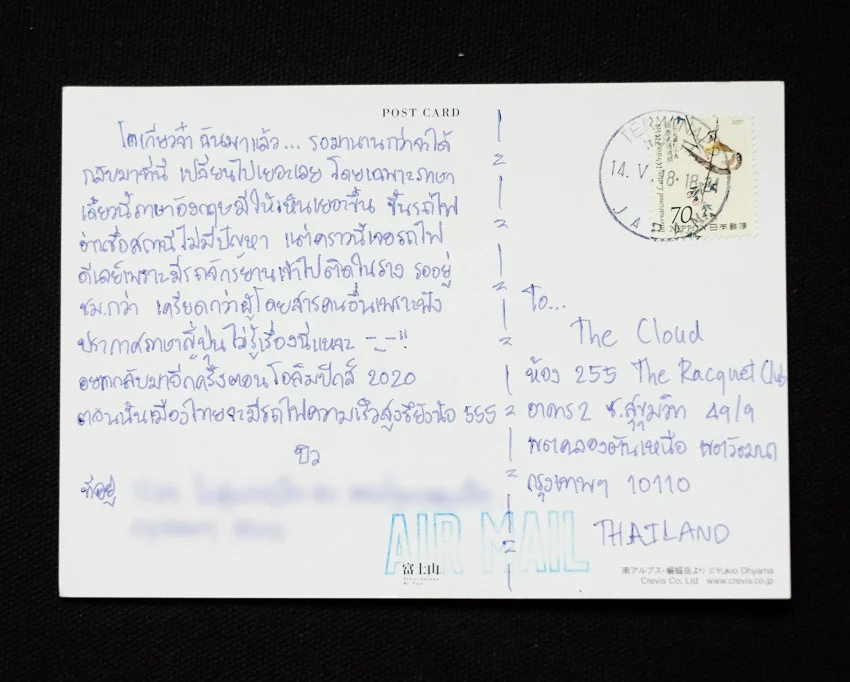 POST CARD
โตเกียวจ๋า ฉันมาแล้ว... รอมานานกว่าจะได้
กลับมาที่นี่ เปลี่ยนไปเยอะเลย โดยเฉพาะภาษา
เดี๋ยวนี้ภาษาอังกฤษมีให้เห็นเยอะขึ้น ขึ้นรถไฟ
อ่านชื่อสถานีไม่มีปัญหา แต่คราวนี้เจอรถไฟ
ดีเลย์เพราะมีรถจักรยานเข้าไปติดในราง รออยู่
ชม.กว่า เครียดกว่าผู้โดยสารคนอื่นเพราะฟัง
ประกาศภาษาญี่ปุ่นไม่รู้เรื่องนี่แหละ -_-!!
อยากกลับมาอีกครั้งตอนโอลิมปิกส์ 2020
ตอนนั้นเมืองไทยจะมีรถไฟความเร็วสูงรึยังน้อ 555
บิว
ที่อยู่
14. V. 18. 18-24
JAPAN
70
NIPPON 日本郵便
To...
The Cloud
ห้อง 255 The Racquet Club
อาคาร 2 ซ.สุขุมวิท 49/9
พตคลองตันเหนือ พตวัฒนา
กรุงเทพฯ 10110
THAILAND
AIR MAIL
富士山
Yukio Ohyama
Mt. Fuji
南アルプス・蝙蝠岳より ©Yukio Ohyama
Crevis Co. Ltd www.crevis.co.jp